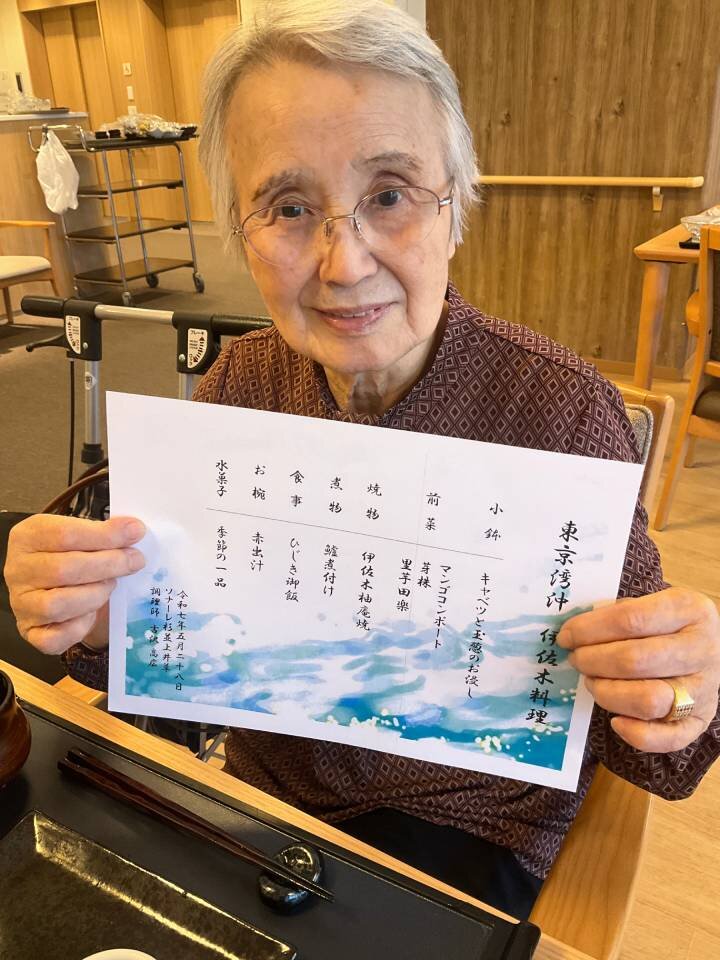 東京湾沖 伊佐木料理
小鉢 キャベツと玉葱のお浸し
前菜 マンゴコンポート
芽株
里芋田楽
焼物 伊佐木柚庵焼
煮物 鱸煮付け
食事 ひじき御飯
お椀 赤出汁
水菓子 季節の一品
令和七年五月二十八日
ソナーレ杉並上井草
調理師